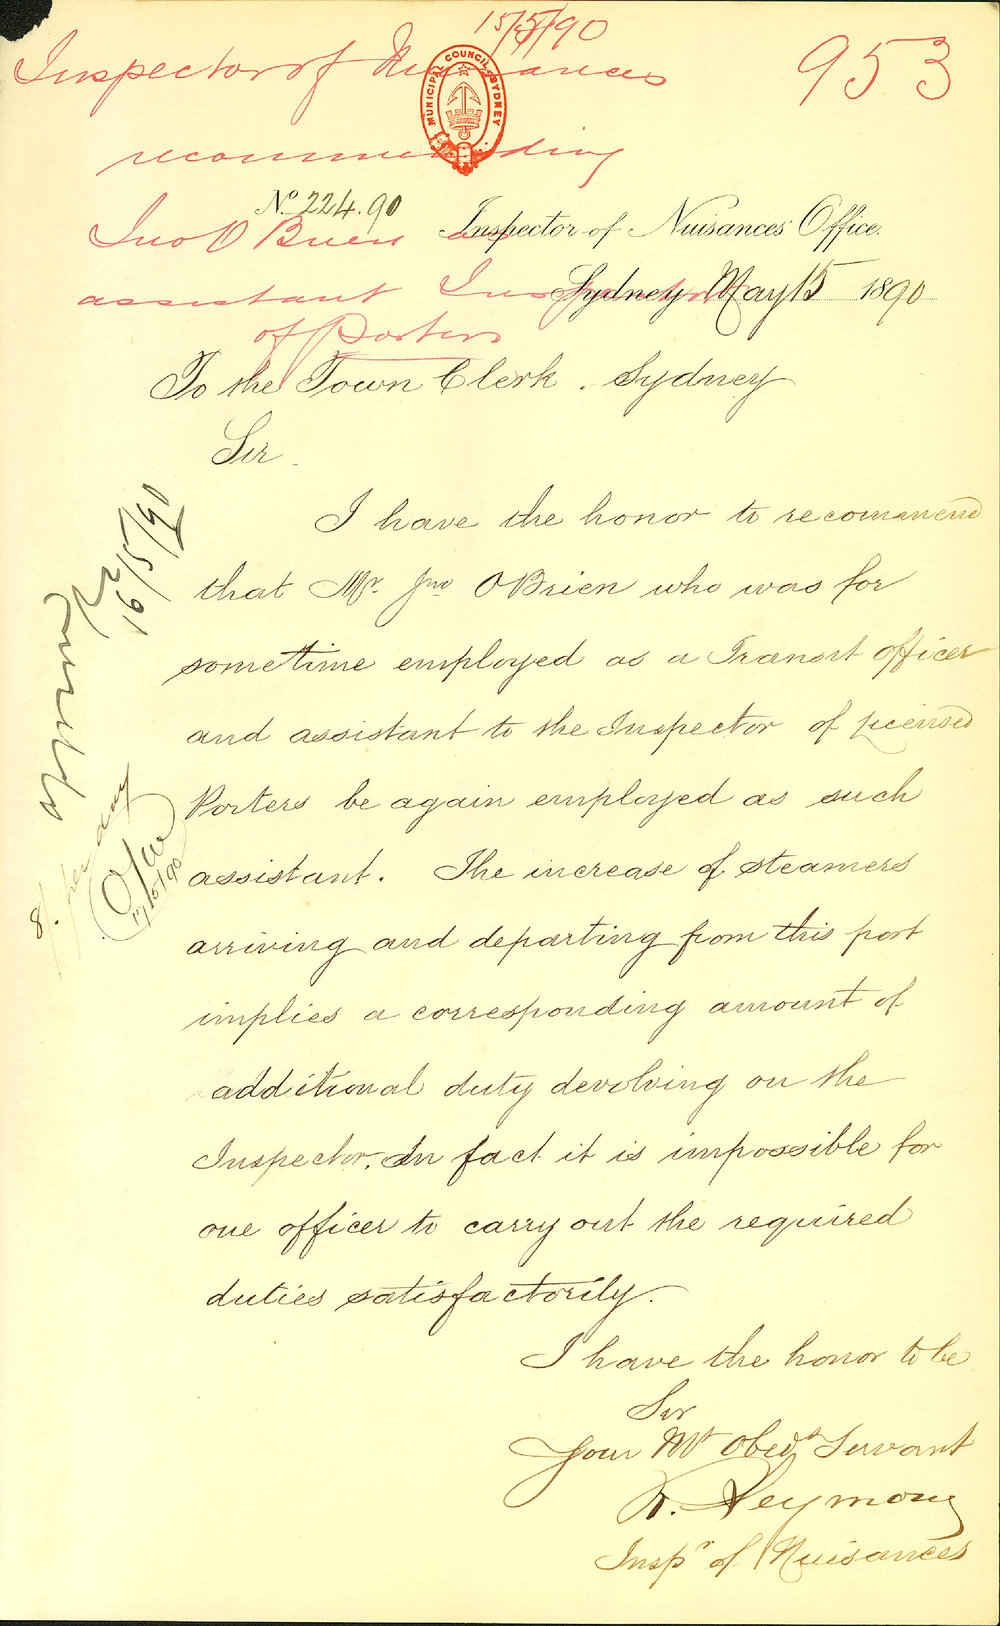 15/5/90
953
Inspector of Nuisances
MUNICIPAL COUNCIL SYDNEY
recommending
Jno O Brien as
assistant Inspector
of Porters
No. 224.90
Inspector of Nuisances Office.
Sydney May 15 1890
To the Town Clerk. Sydney
Sir
I have the honor to recommend
that Mr. Jno OBrien who was for
sometime employed as a Transit officer
and assistant to the Inspector of Licensed
Porters be again employed as such
assistant. The increase of steamers
arriving and departing from this port
implies a corresponding amount of
additional duty devolving on the
Inspector. In fact it is impossible for
one officer to carry out the required
duties satisfactorily.
I have the honor to be
Sir
Your Mt Obedt Servant
R. Seymour
Inspr of Nuisances
16/5/90
8/- per day
17/5/90